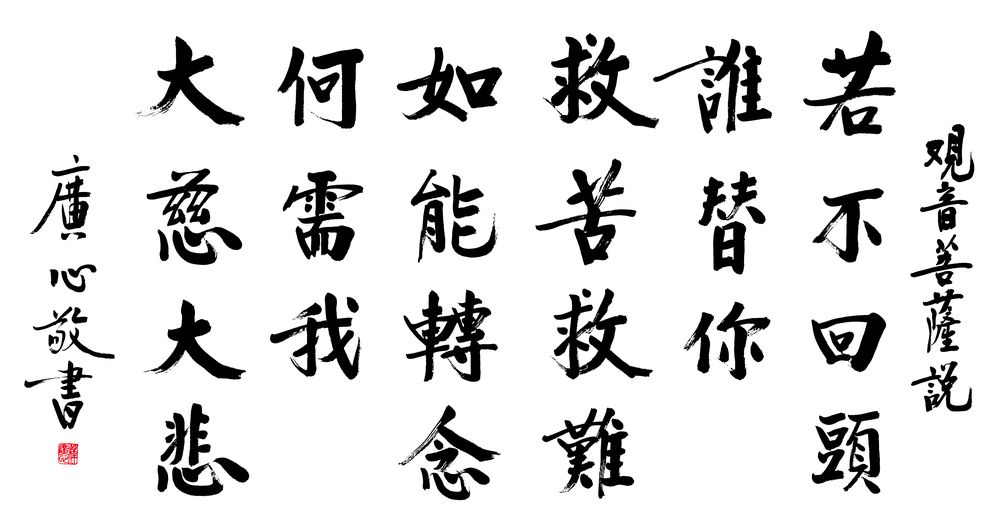 观音菩薩説
若不回頭
誰替你
救苦救難
如能轉念
何需我
大慈大悲
廣心敬書